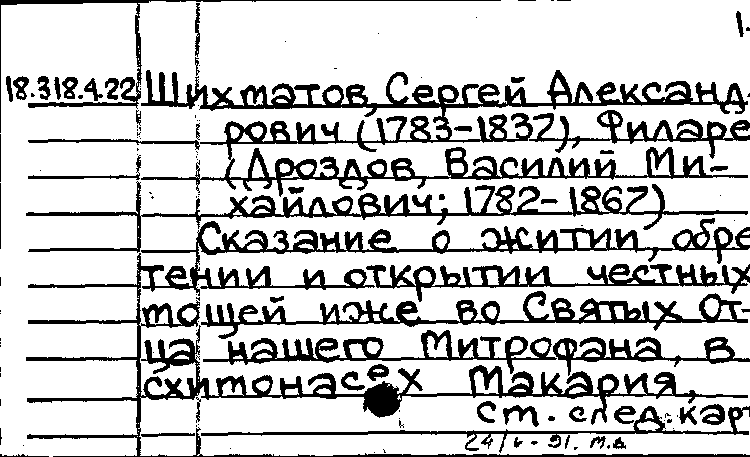 1.
18.318.4.22 Шихматов, Сергей Александ-
рович (1783-1837), Филаре
(Дроздов, Василий Ми-
хайлович; 1782-1867)
Сказание о житии, обре
тении и открытии честных
тощей иже во Святых От-
ца нашего Митрофана, в
схитонасех Макария,
ст. след. карт
24/ - 91. м.в.